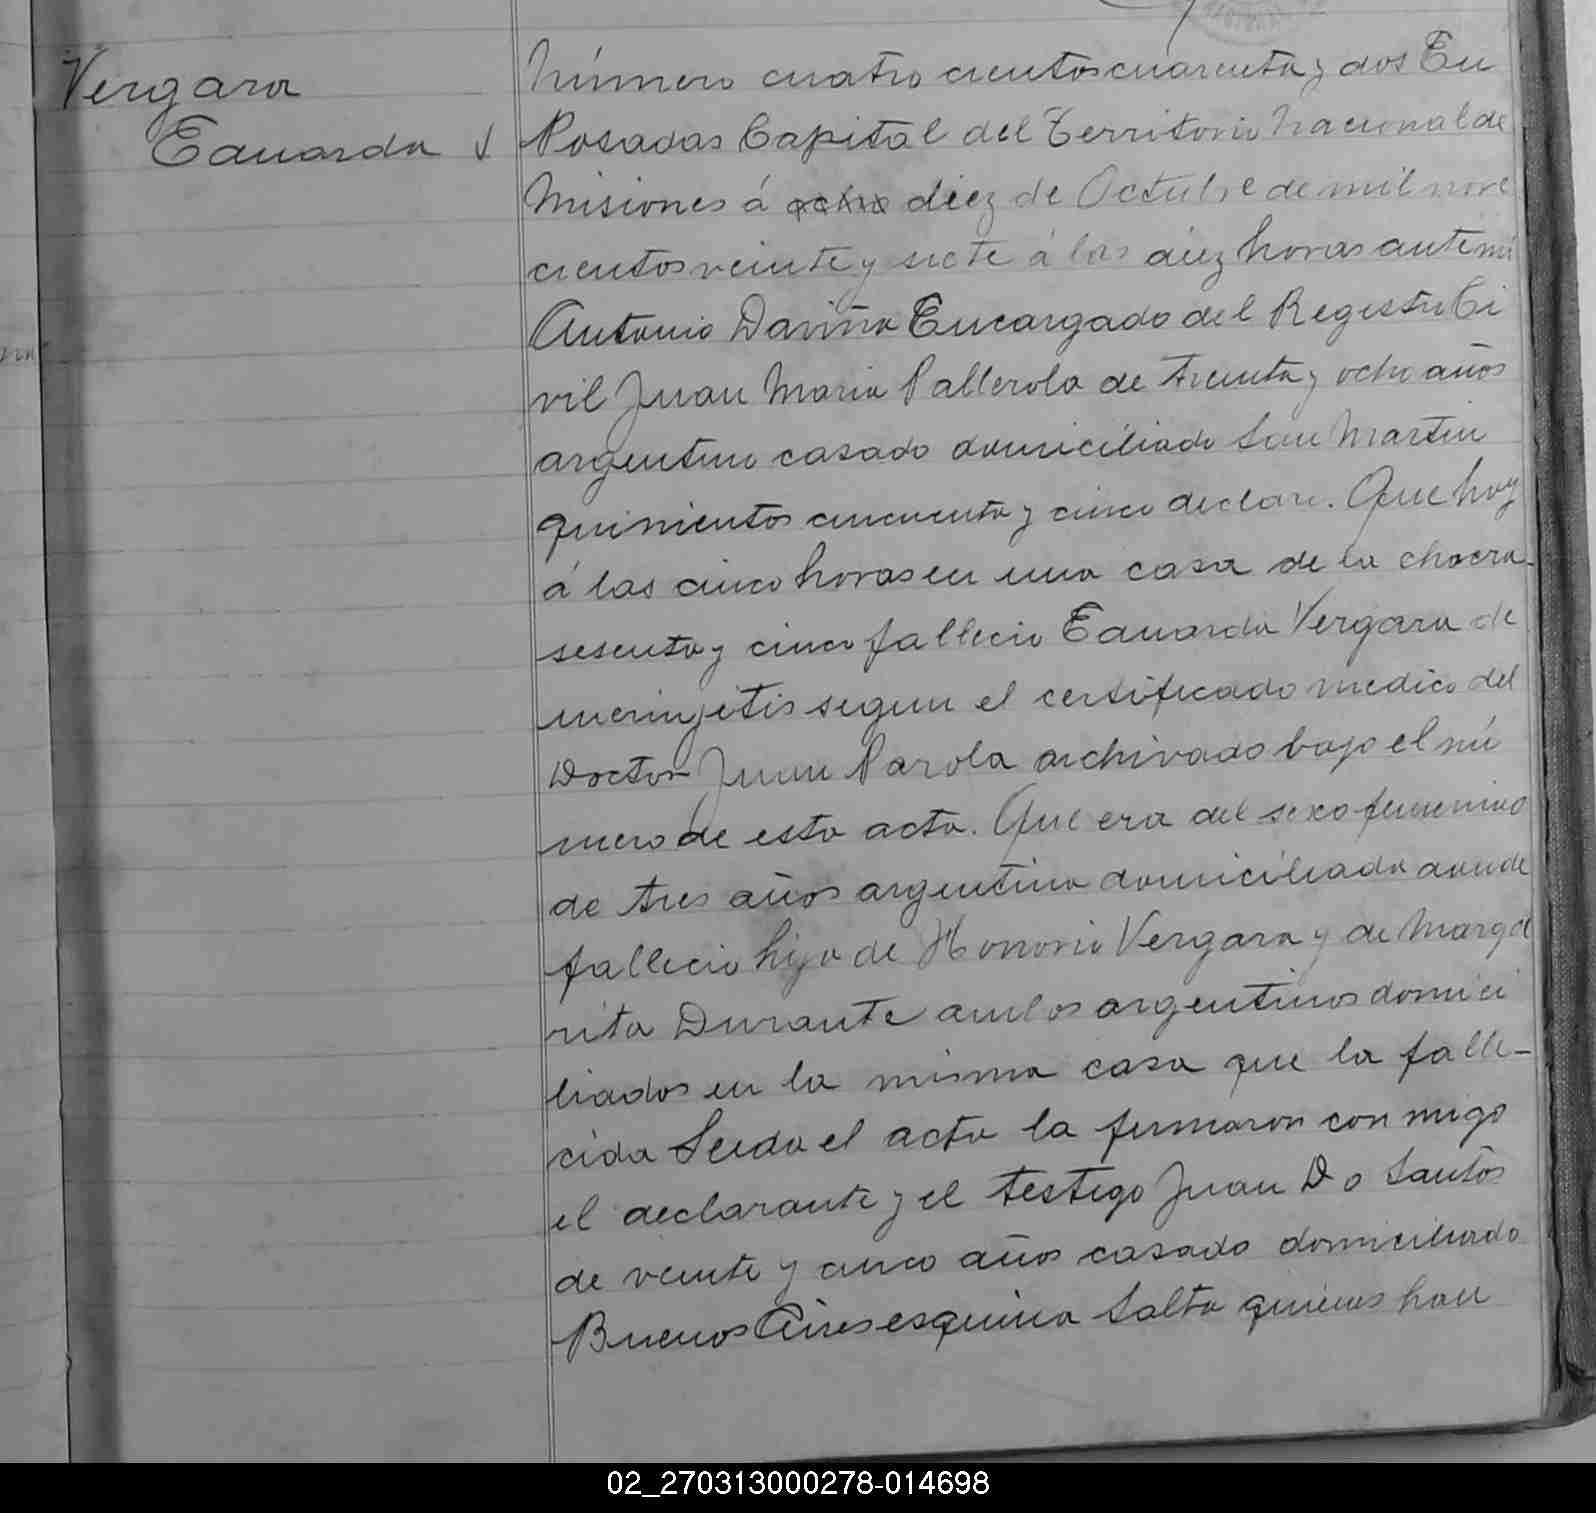 Vergara
Eduarda
Número cuatro cientos cuarenta y dos En
Posadas Capital del Territorio Nacional de
Misiones á ocho diez de Octubre de mil nove
cientos veinte y siete á las diez horas ante mi
Antonio Daviña Encargado del Registro Ci
vil Juan Maria Pallerola de treinta y ocho años
argentino casado domiciliado San Martin
quinientos cincuenta y cinco declaro. Que hoy
á las cinco horas en una casa de la chacra
sesenta y cinco fallecio Eduarda Vergara de
meningitis segun el certificado medico del
Doctor Juan Parola archivado bajo el nú
mero de esta acta. Que era del sexo femenino
de tres años argentina domiciliada donde
fallecio hija de Honorio Vergara y de Marga
rita Durante ambos argentinos domici
liados en la misma casa que la falle-
cida Leida el acta la firmaron con migo
el declarante y el testigo Juan Do Santos
de veinte y cinco años casado domiciliado
Buenos Aires esquina Salta quienes han
02_270313000278-014698